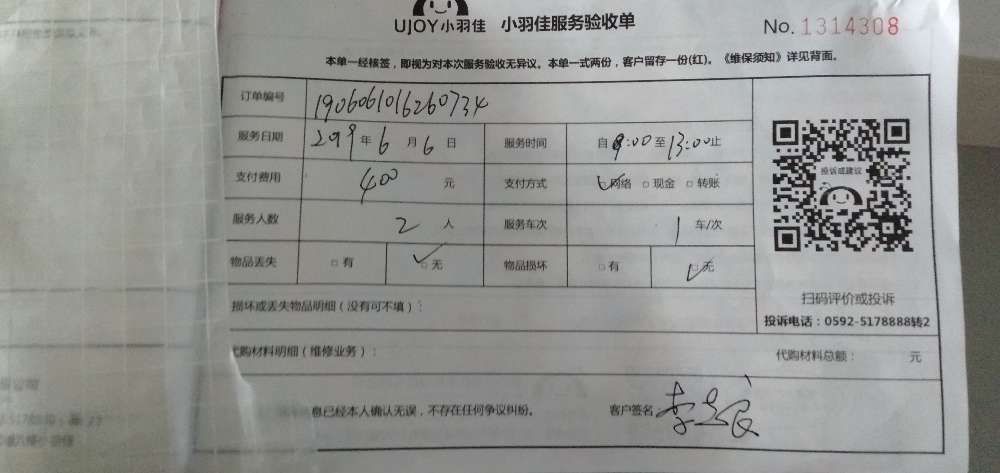 UJOY小羽佳 小羽佳服务验收单 No.1314308
本单一经核签，即视为对本次服务验收无异议。本单一式两份，客户留存一份(红)。《维保须知》详见背面。
订单编号 1906061016260734
服务日期 2019年6月6日 服务时间 自9:00至13:00止
支付费用 400 元 支付方式 网络 □现金 □转账
服务人数 2 人 服务车次 1 车/次
物品丢失 □有 □无 物品损坏 □有 □无
投诉或建议
扫码评价或投诉
投诉电话：0592-5178888转2
损坏或丢失物品明细（没有可不填）：
代购材料明细（维修业务）： 代购材料总额： 元
息已经本人确认无误，不存在任何争议纠纷。 客户签名